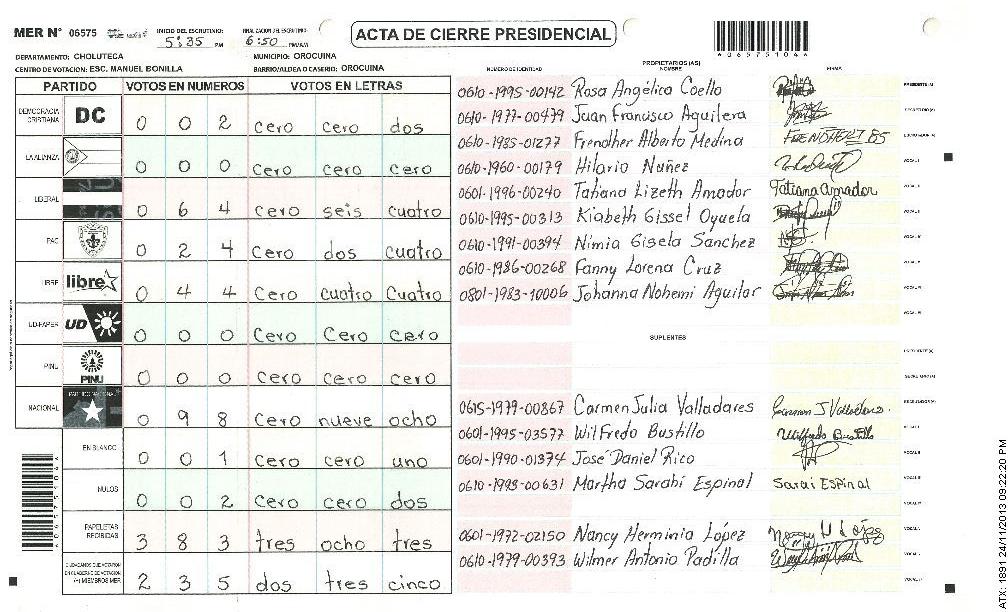 MER N° 06575 INICIO DEL ESCRUTINIO: 5:35 PM FINALIZACION DEL ESCRUTINIO: 6:50 PM/AM
ACTA DE CIERRE PRESIDENCIAL
0657510 44
DEPARTAMENTO: CHOLUTECA MUNICIPIO: OROCUINA
CENTRO DE VOTACION: ESC. MANUEL BONILLA BARRIO/ALDEA O CASERIO: OROCUINA
PARTIDO VOTOS EN NUMEROS VOTOS EN LETRAS
DEMOCRACIA CRISTIANA DC 0 0 2 cero cero dos
LA ALIANZA 0 0 0 cero cero cero
LIBERAL 0 6 4 cero seis cuatro
PAC 0 2 4 cero dos cuatro
LIBRE libre 0 4 4 cero cuatro cuatro
UD-FAPER UD 0 0 0 cero cero cero
PINU PINU 0 0 0 cero cero cero
NACIONAL PARTIDO NACIONAL 0 9 8 cero nueve ocho
EN BLANCO 0 0 1 cero cero uno
NULOS 0 0 2 cero cero dos
PAPELETAS RECIBIDAS 3 8 3 tres ocho tres
CIUDADANOS QUE VOTARON EN CUADERNO DE VOTACION (+) MIEMBROS MER 2 3 5 dos tres cinco
PROPIETARIOS (AS)
NUMERO DE IDENTIDAD NOMBRE FIRMA
0610-1995-00142 Rosa Angélica Coello PRESIDENTE (A)
0610-1977-00479 Juan Francisco Aguilera SECRETARIO (A)
0610-1985-01277 Frendher Alberto Medina ESCRUTADOR (A)
0610-1960-00179 Hilario Nuñez VOCAL I
0601-1996-00240 Tatiana Lizeth Amador Tatiana amador VOCAL II
0610-1995-00313 Kiabeth Gissel Oyuela
0610-1991-00394 Nimia Gisela Sanchez
0610-1986-00268 Fanny Lorena Cruz
0801-1983-10006 Johanna Nohemi Aguilar
SUPLENTES
PRESIDENTE (A)
SECRETARIO (A)
0615-1979-00867 Carmen Julia Valladares Carmen J Valladares ESCRUTADOR (A)
0601-1995-03577 Wilfredo Bustillo Wilfredo Bustillo VOCAL I
0601-1990-01374 José Daniel Rico
0610-1993-00631 Martha Sarahí Espinal Sarai Espinal
0601-1972-02150 Nancy Herminia López Nancy H López
0610-1979-00393 Wilmer Antonio Padilla
ATX: 1891 24/11/2013 09:22:20 PM